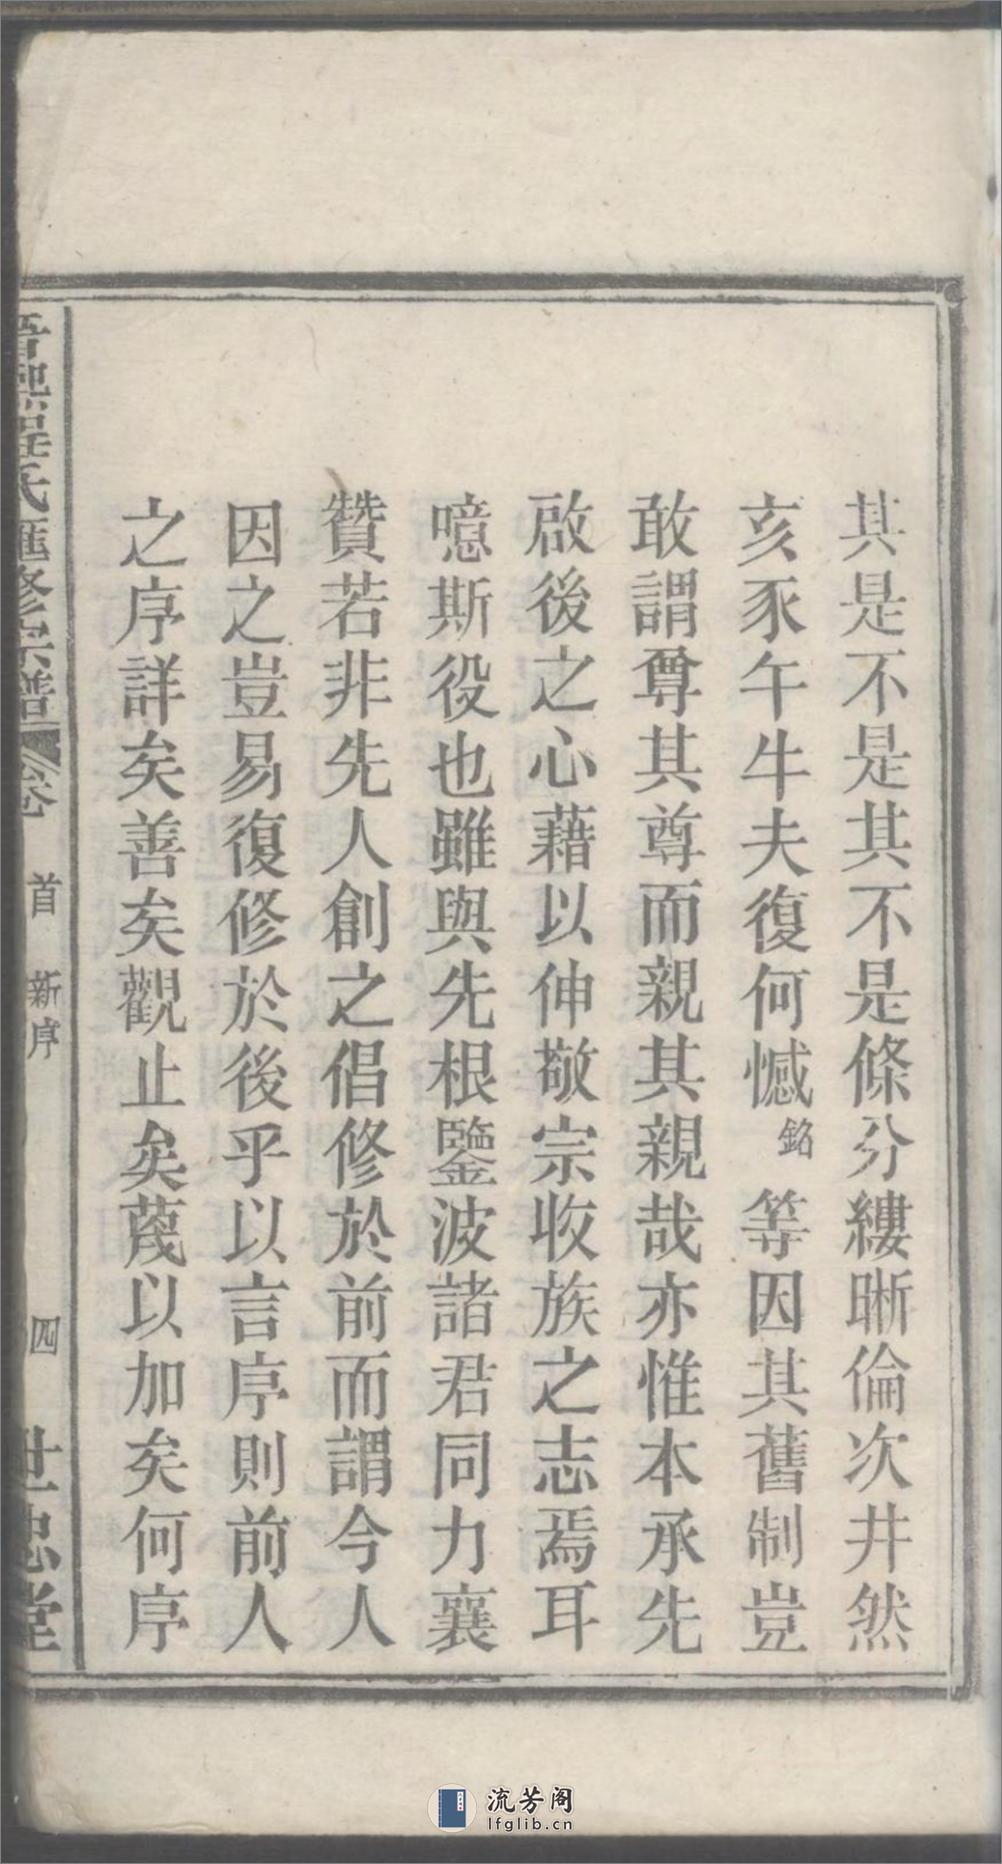 其是不是其不是條分縷晰倫次井然
亥豕午牛夫復何憾銘等因其舊制豈
敢謂尊其尊而親其親哉亦惟本承先
啟後之心藉以伸敬宗收族之志焉耳
噫斯役也雖與先根鑒波諸君同力襄
贊若非先人創之倡修於前而謂今人
因之豈易復修於後乎以言序則前人
之序詳矣善矣觀止矣蔑以加矣何序
熙程氏匯修宗譜 卷首 新序 四 世忠堂
流芳阁
lfglib.cn